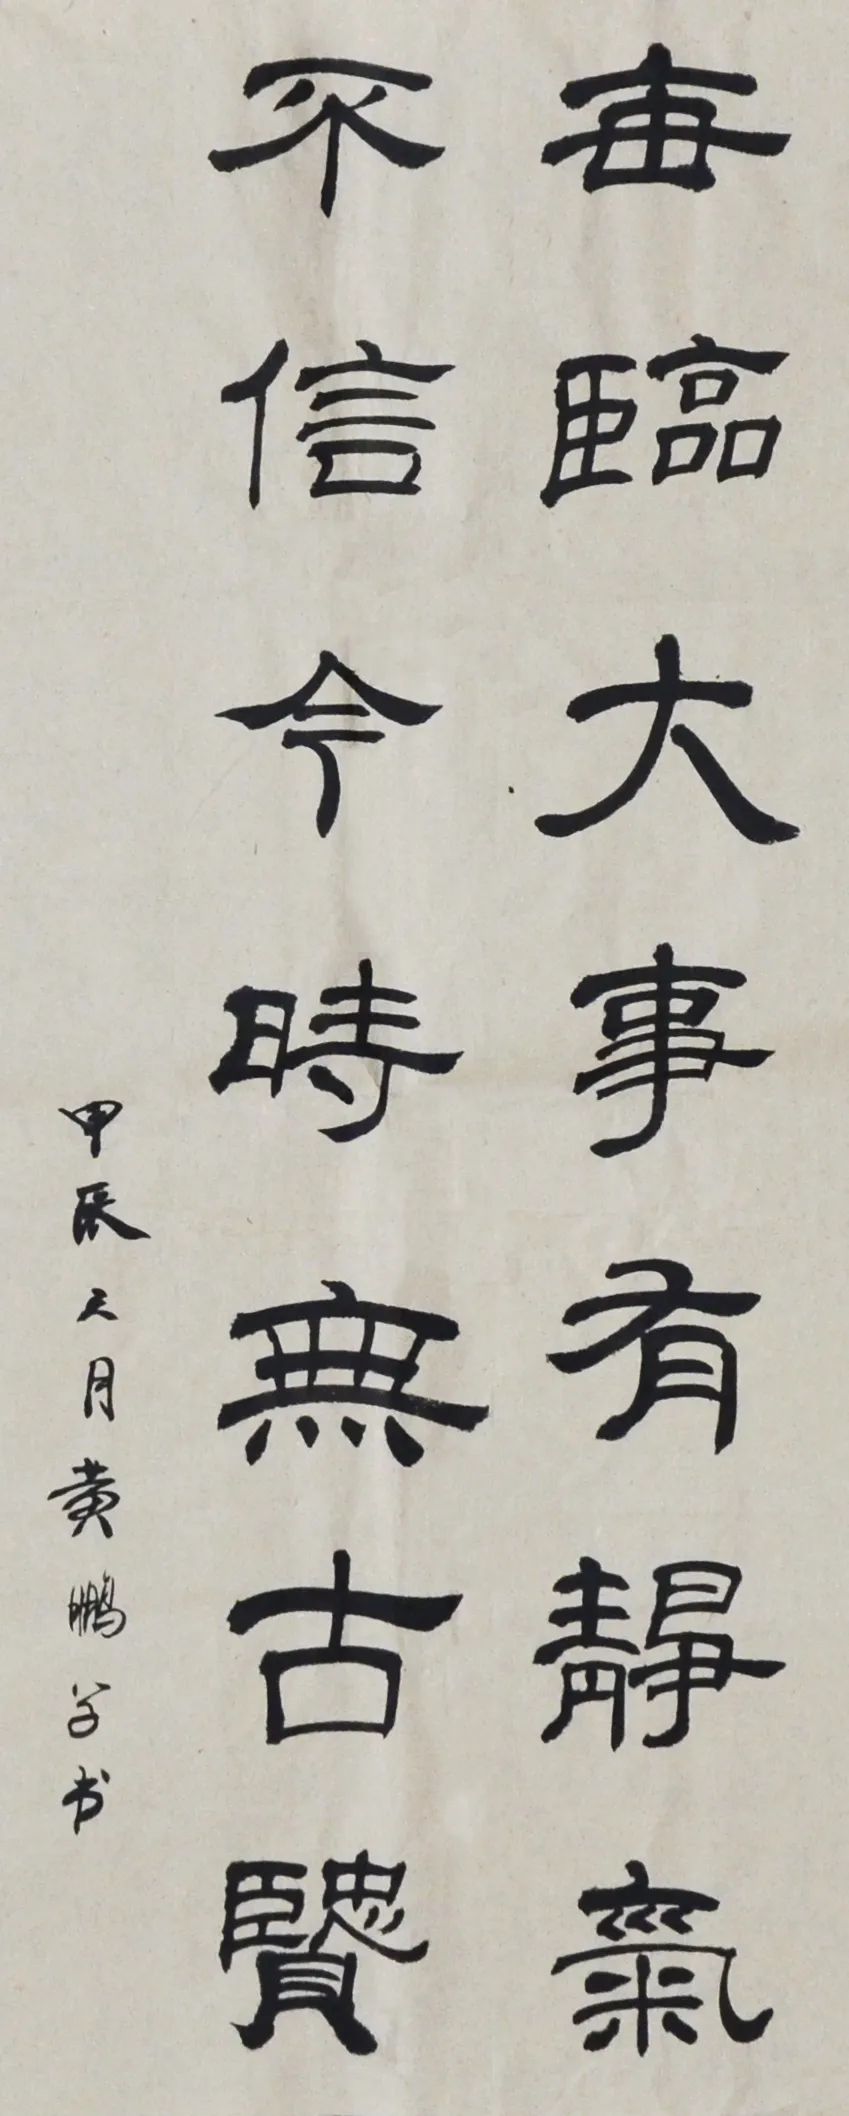 每臨大事有靜氣
不信今時無古賢
甲辰 月黄鹏 书